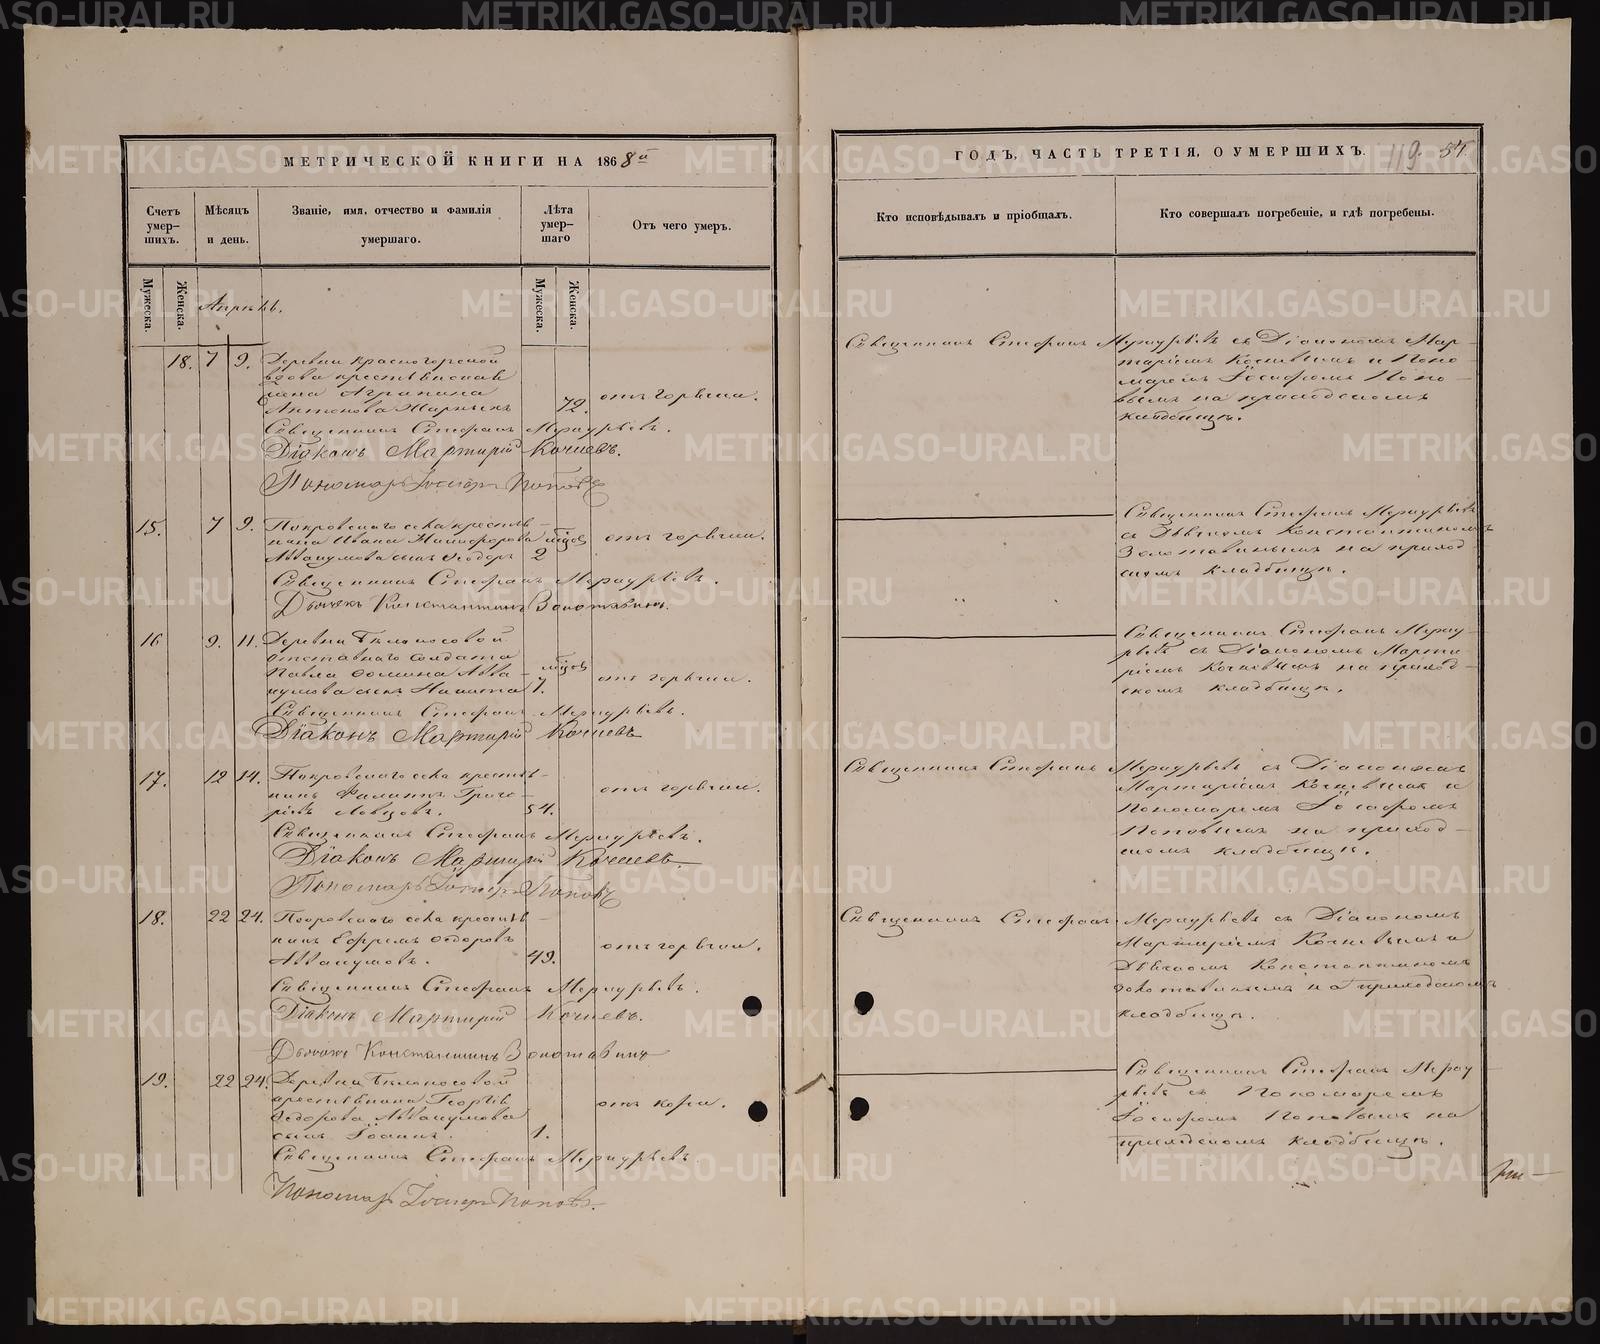 МЕТРИЧЕСКОЙ КНИГИ НА 1868й
Счетъ умер-шихъ.
Мѣсяцъ и день.
Званіе, имя, отчество и фамилія умершаго.
Лѣта умер-шаго
Отъ чего умеръ.
Мужеска.
Женска.
Апрѣль.
Мужеска.
Женска.
18. 7 9. Деревни Красногорской
вдова крестьянская
жена Агрипина
Антонова 72. отъ горячки.
Священникъ Стефанъ Меркурьевъ.
Діаконъ Мартирій Кочневъ.
Пономарь Іосифъ Поповъ
15. 7 9. Покровскаго села крестья-
нина Ивана Никифорова мѣсяц. отъ горячки.
Аввакумова сынъ Ѳеодоръ 2
Священникъ Стефанъ Меркурьевъ.
Дьячекъ Константинъ Золотавинъ.
16 9. 11. Деревни Бѣлоносовой
отставнаго солдата
Павла Ѳомина Авва- мѣсяц. отъ горячки.
кумова сынъ Никита 7.
Священникъ Стефанъ Меркурьевъ.
Діаконъ Мартирій Кочневъ
17. 12 14. Покровскаго села крестья-
нинъ Филиппъ Григо- отъ горячки.
рьевъ Ловцовъ. 54.
Священникъ Стефанъ Меркурьевъ.
Діаконъ Мартирій Кочневъ
Пономарь Іосифъ Поповъ
18. 22 24. Покровскаго села крестья-
нинъ Ефремъ Ѳедоровъ отъ горячки.
Аввакумовъ. 49.
Священникъ Стефанъ Меркурьевъ.
Діаконъ Мартирій Кочневъ.
Дьячекъ Константинъ Золотавинъ
19. 22 24. Деревни Бѣлоносовой
крестьянина Георгія отъ кори.
Ѳедорова Аввакумова
сынъ Іоаннъ. 1.
Священникъ Стефанъ Меркурьевъ.
Пономарь Іосифъ Поповъ.
ГОДЪ, ЧАСТЬ ТРЕТІЯ, О УМЕРШИХЪ. 119. 54
Кто исповѣдывалъ и пріобщалъ.
Кто совершалъ погребеніе, и гдѣ погребены.
Священникъ Стефанъ Меркурьевъ съ Діакономъ Мар-
тиріемъ Кочневымъ и Поно-
маремъ Іосифомъ Попо-
вымъ на приходскомъ
кладбищѣ.
Священникъ Стефанъ Меркурьевъ
съ Дьячкомъ Константиномъ
Золотавинымъ на приход-
скомъ кладбищѣ.
Священникъ Стефанъ Мерку-
рьевъ съ Діакономъ Марти-
ріемъ Кочневымъ на приход-
скомъ кладбищѣ.
Священникъ Стефанъ Меркурьевъ съ Діакономъ
Мартиріемъ Кочневымъ и
Пономаремъ Іосифомъ
Поповымъ на приход-
скомъ кладбищѣ.
Священникъ Стефанъ Меркурьевъ съ Діакономъ
Мартиріемъ Кочневымъ и
Дьячкомъ Константиномъ
Золотавинымъ на приходскомъ
кладбищѣ.
Священникъ Стефанъ Мерку
рьевъ съ Пономаремъ
Іосифомъ Поповымъ на
приходскомъ кладбищѣ.
METRIKI.GASO-URAL.RU